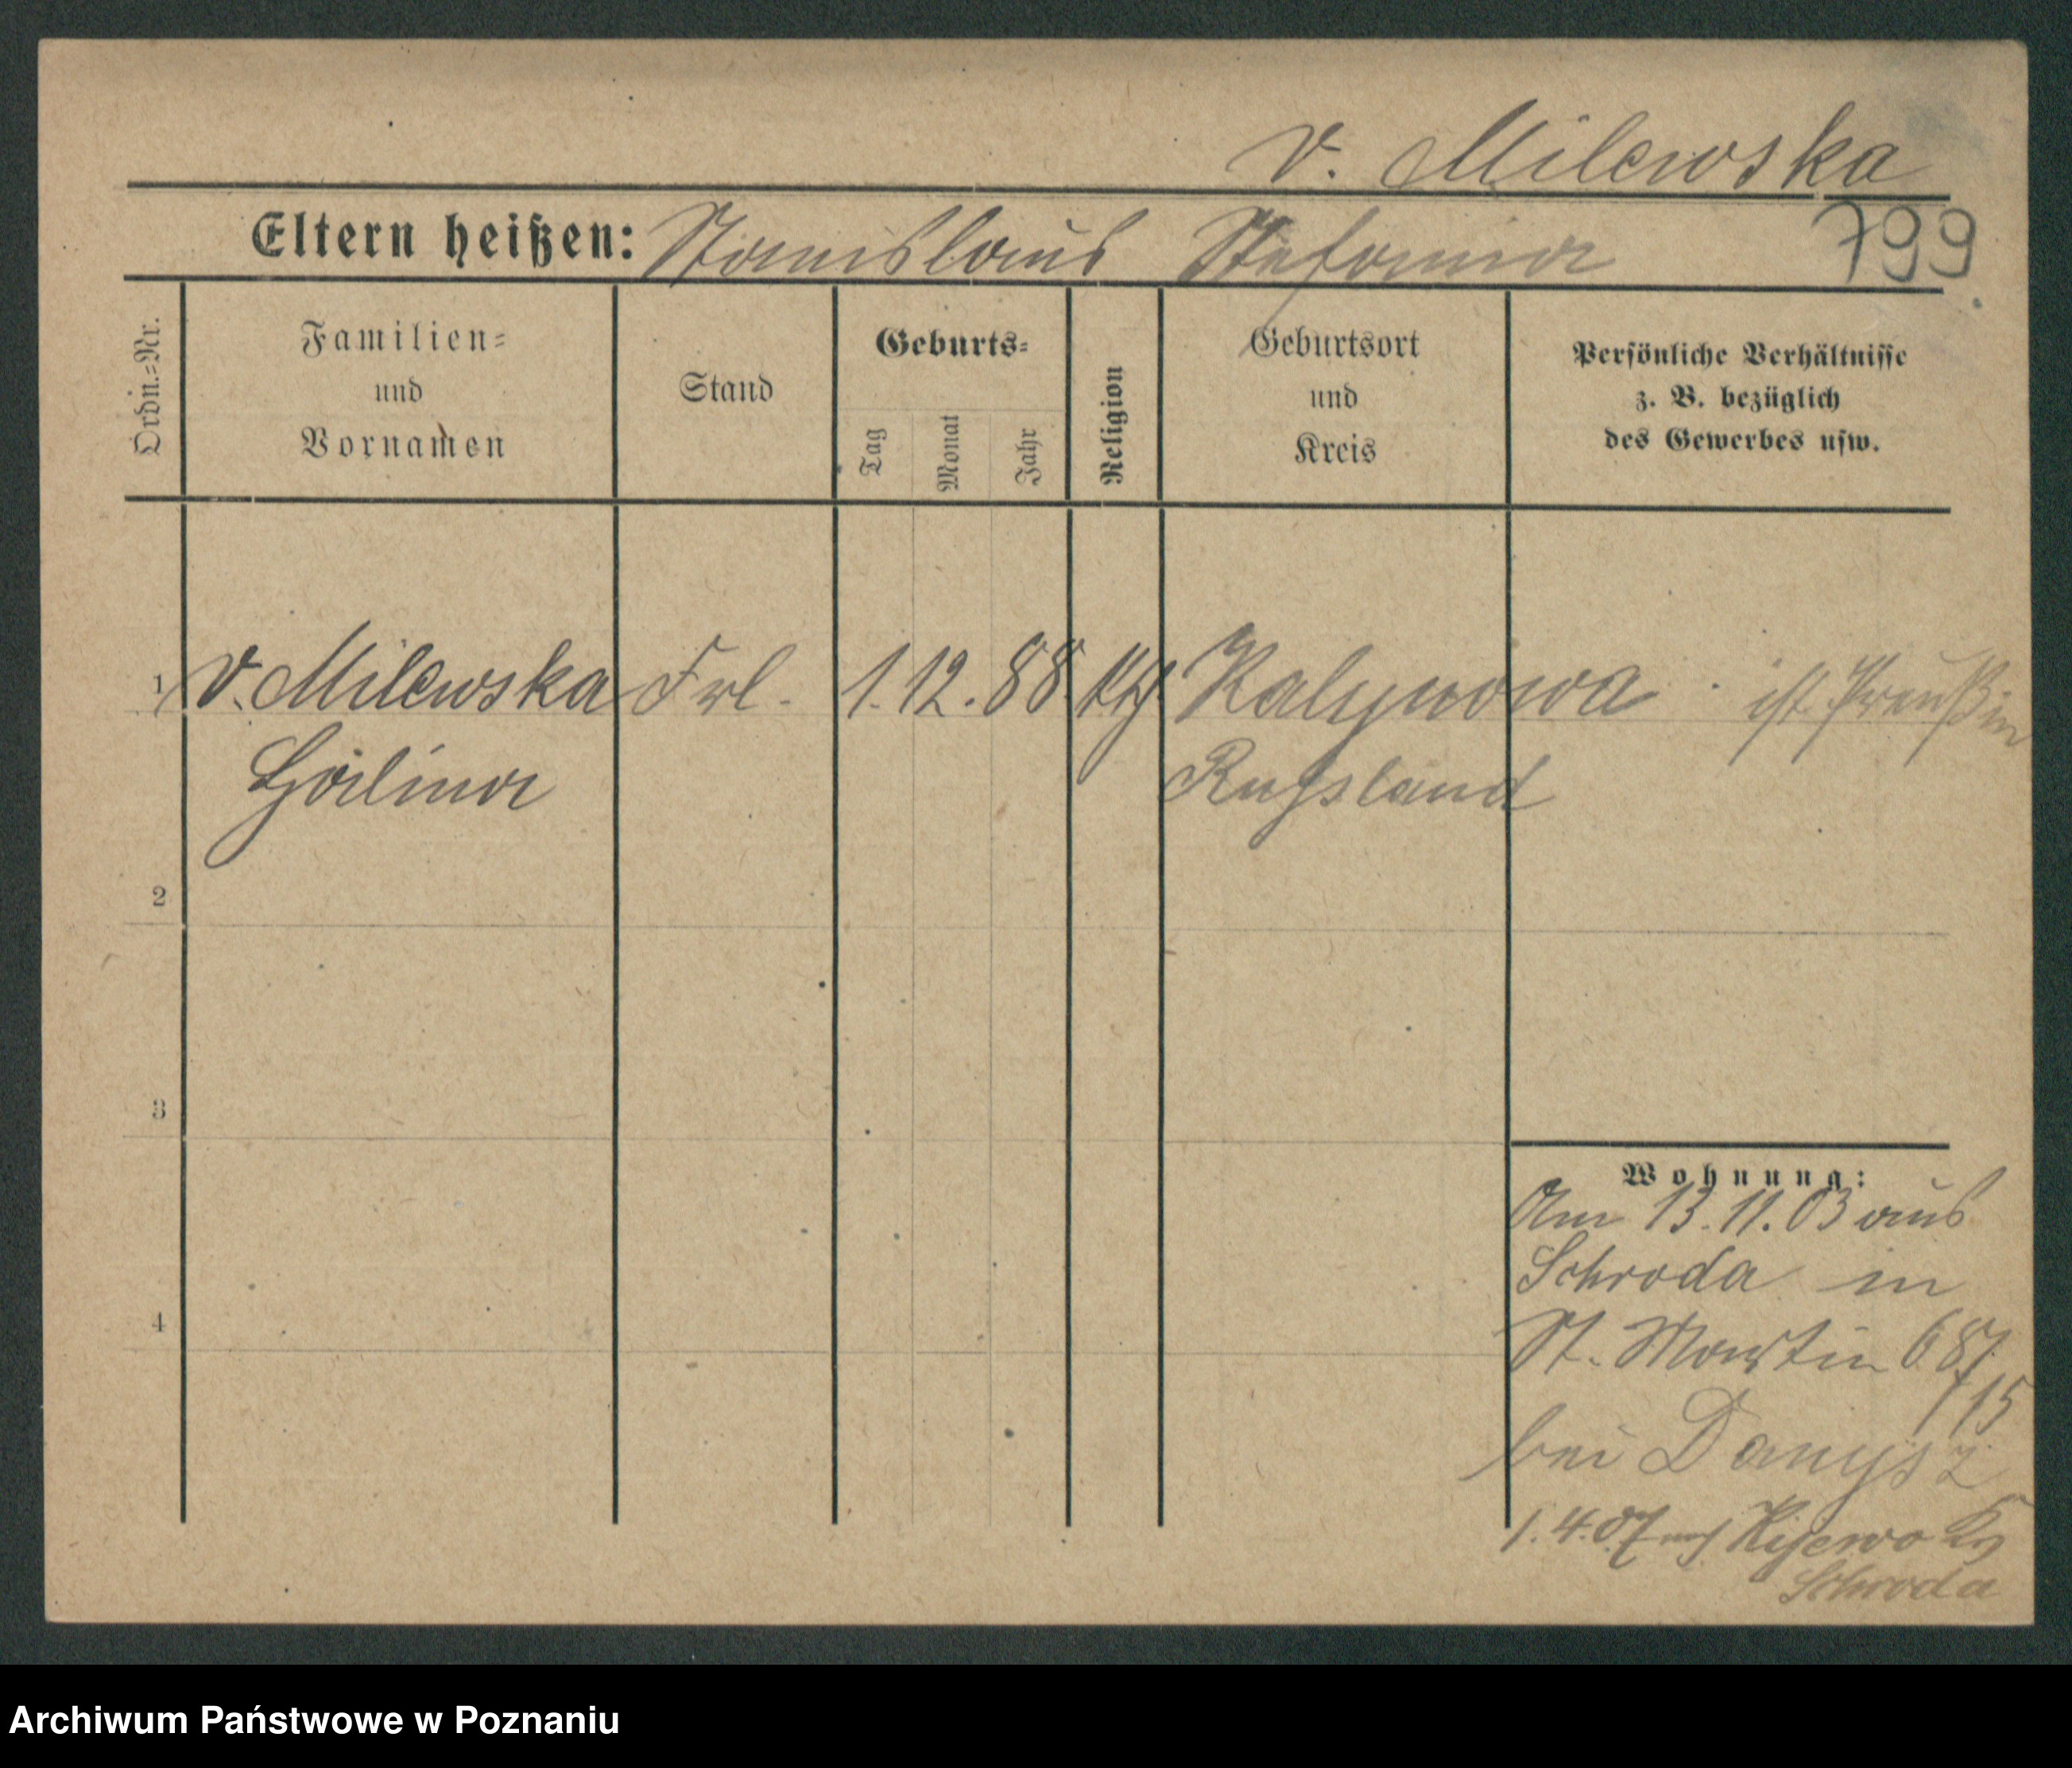 v. Milewska
Eltern heißen: Stanislaus Stefania 799
Ordn.-Nr.
Familien- und Vornamen
Stand
Geburts-
Tag
Monat
Jahr
Religion
Geburtsort und Kreis
Persönliche Verhältnisse z. B. bezüglich des Gewerbes usw.
1 v. Milewska Frl. 1. 12. 88 kth Kalynowa ist Preußin
Halina Russland
2
3
4
Wohnung:
Am 13. 11. 03 aus
Schroda in
St. Martin 687
/15
bei Danysz
1. 4. 07 nach Kijewo Krs
Schroda
Archiwum Państwowe w Poznaniu